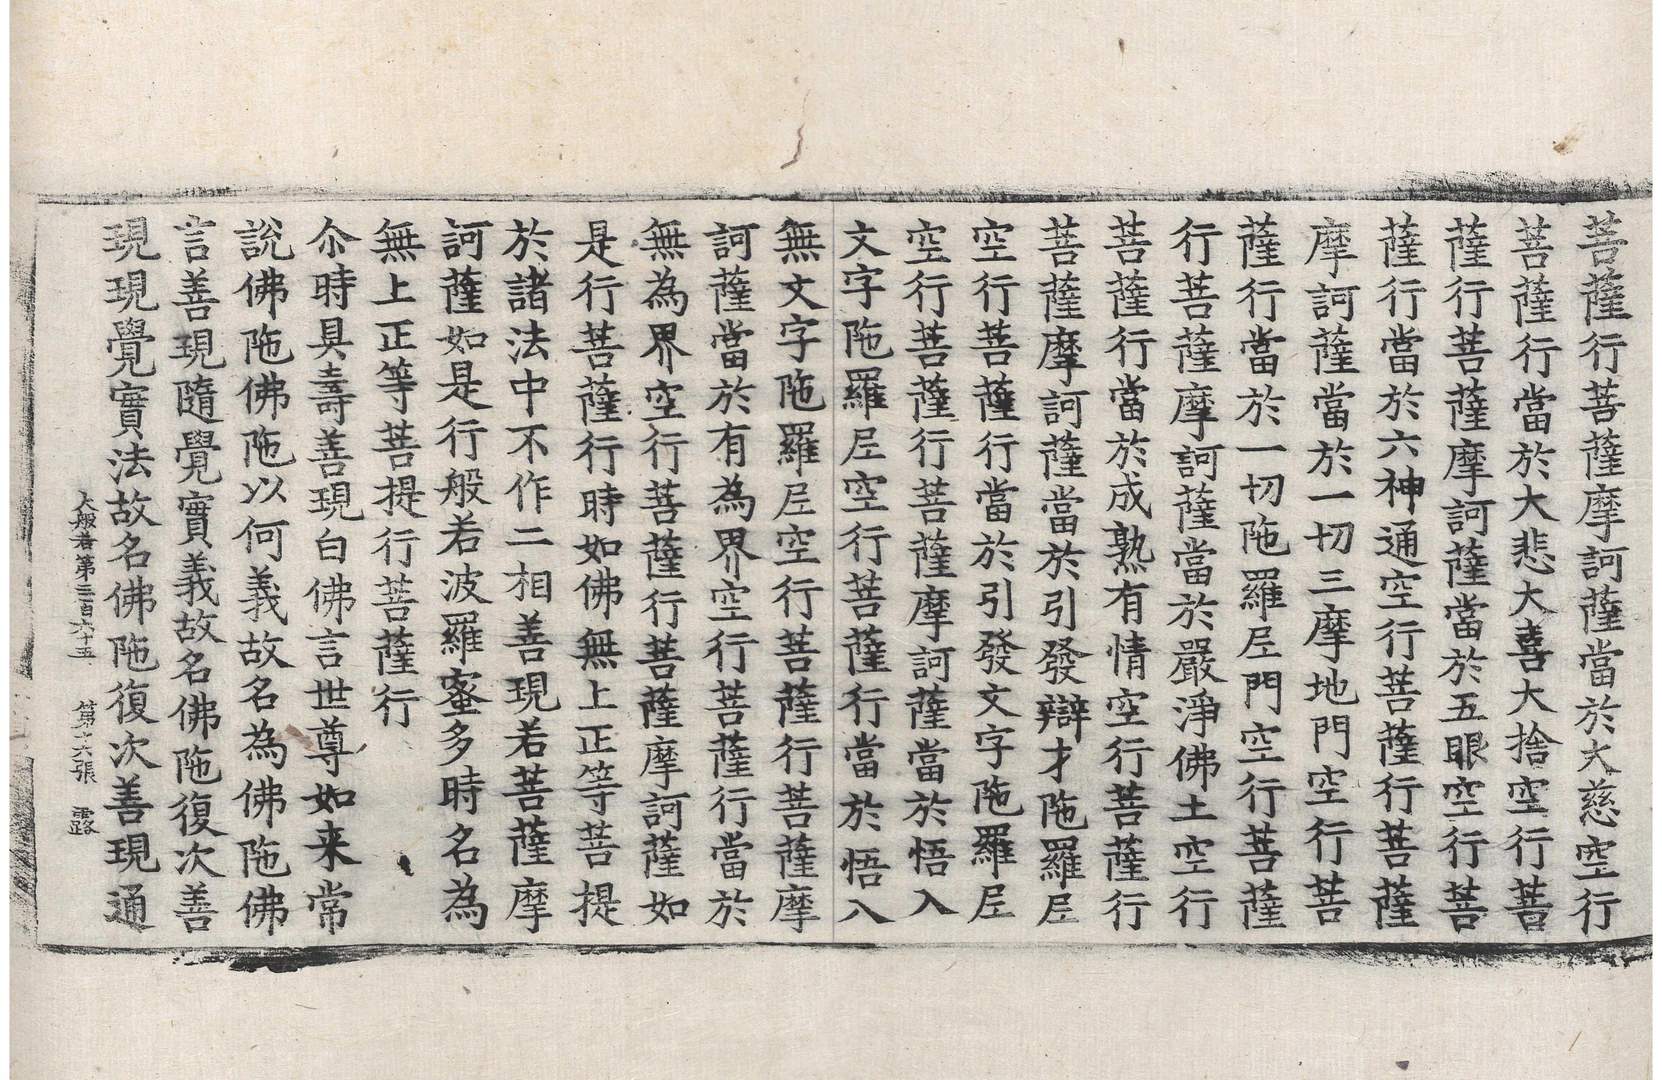 菩薩行菩薩摩訶薩當於大慈空行
菩薩行當於大悲大喜大捨空行菩
薩行菩薩摩訶薩當於五眼空行菩
薩行當於六神通空行菩薩行菩薩
摩訶薩當於一切三摩地門空行菩
薩行當於一切陁羅尼門空行菩薩
行菩薩摩訶薩當於嚴淨佛土空行
菩薩行當於成熟有情空行菩薩行
菩薩摩訶薩當於引發辯才陁羅尼
空行菩薩行當於引發文字陁羅尼
空行菩薩行菩薩摩訶薩當於悟入
文字陁羅尼空行菩薩行當於悟入
無文字陁羅尼空行菩薩行菩薩摩
訶薩當於有為界空行菩薩行當於
無為界空行菩薩行菩薩摩訶薩如
是行菩薩行時如佛無上正等菩提
於諸法中不作二相善現若菩薩摩
訶薩如是行般若波羅蜜多時名為
無上正等菩提行菩薩行
尒時具壽善現白佛言世尊如来常
說佛陁佛陁以何義故名為佛陁佛
言善現隨覺實義故名佛陁復次善
現現覺實法故名佛陁復次善現通
大般若第三百六十五 第十六張 露